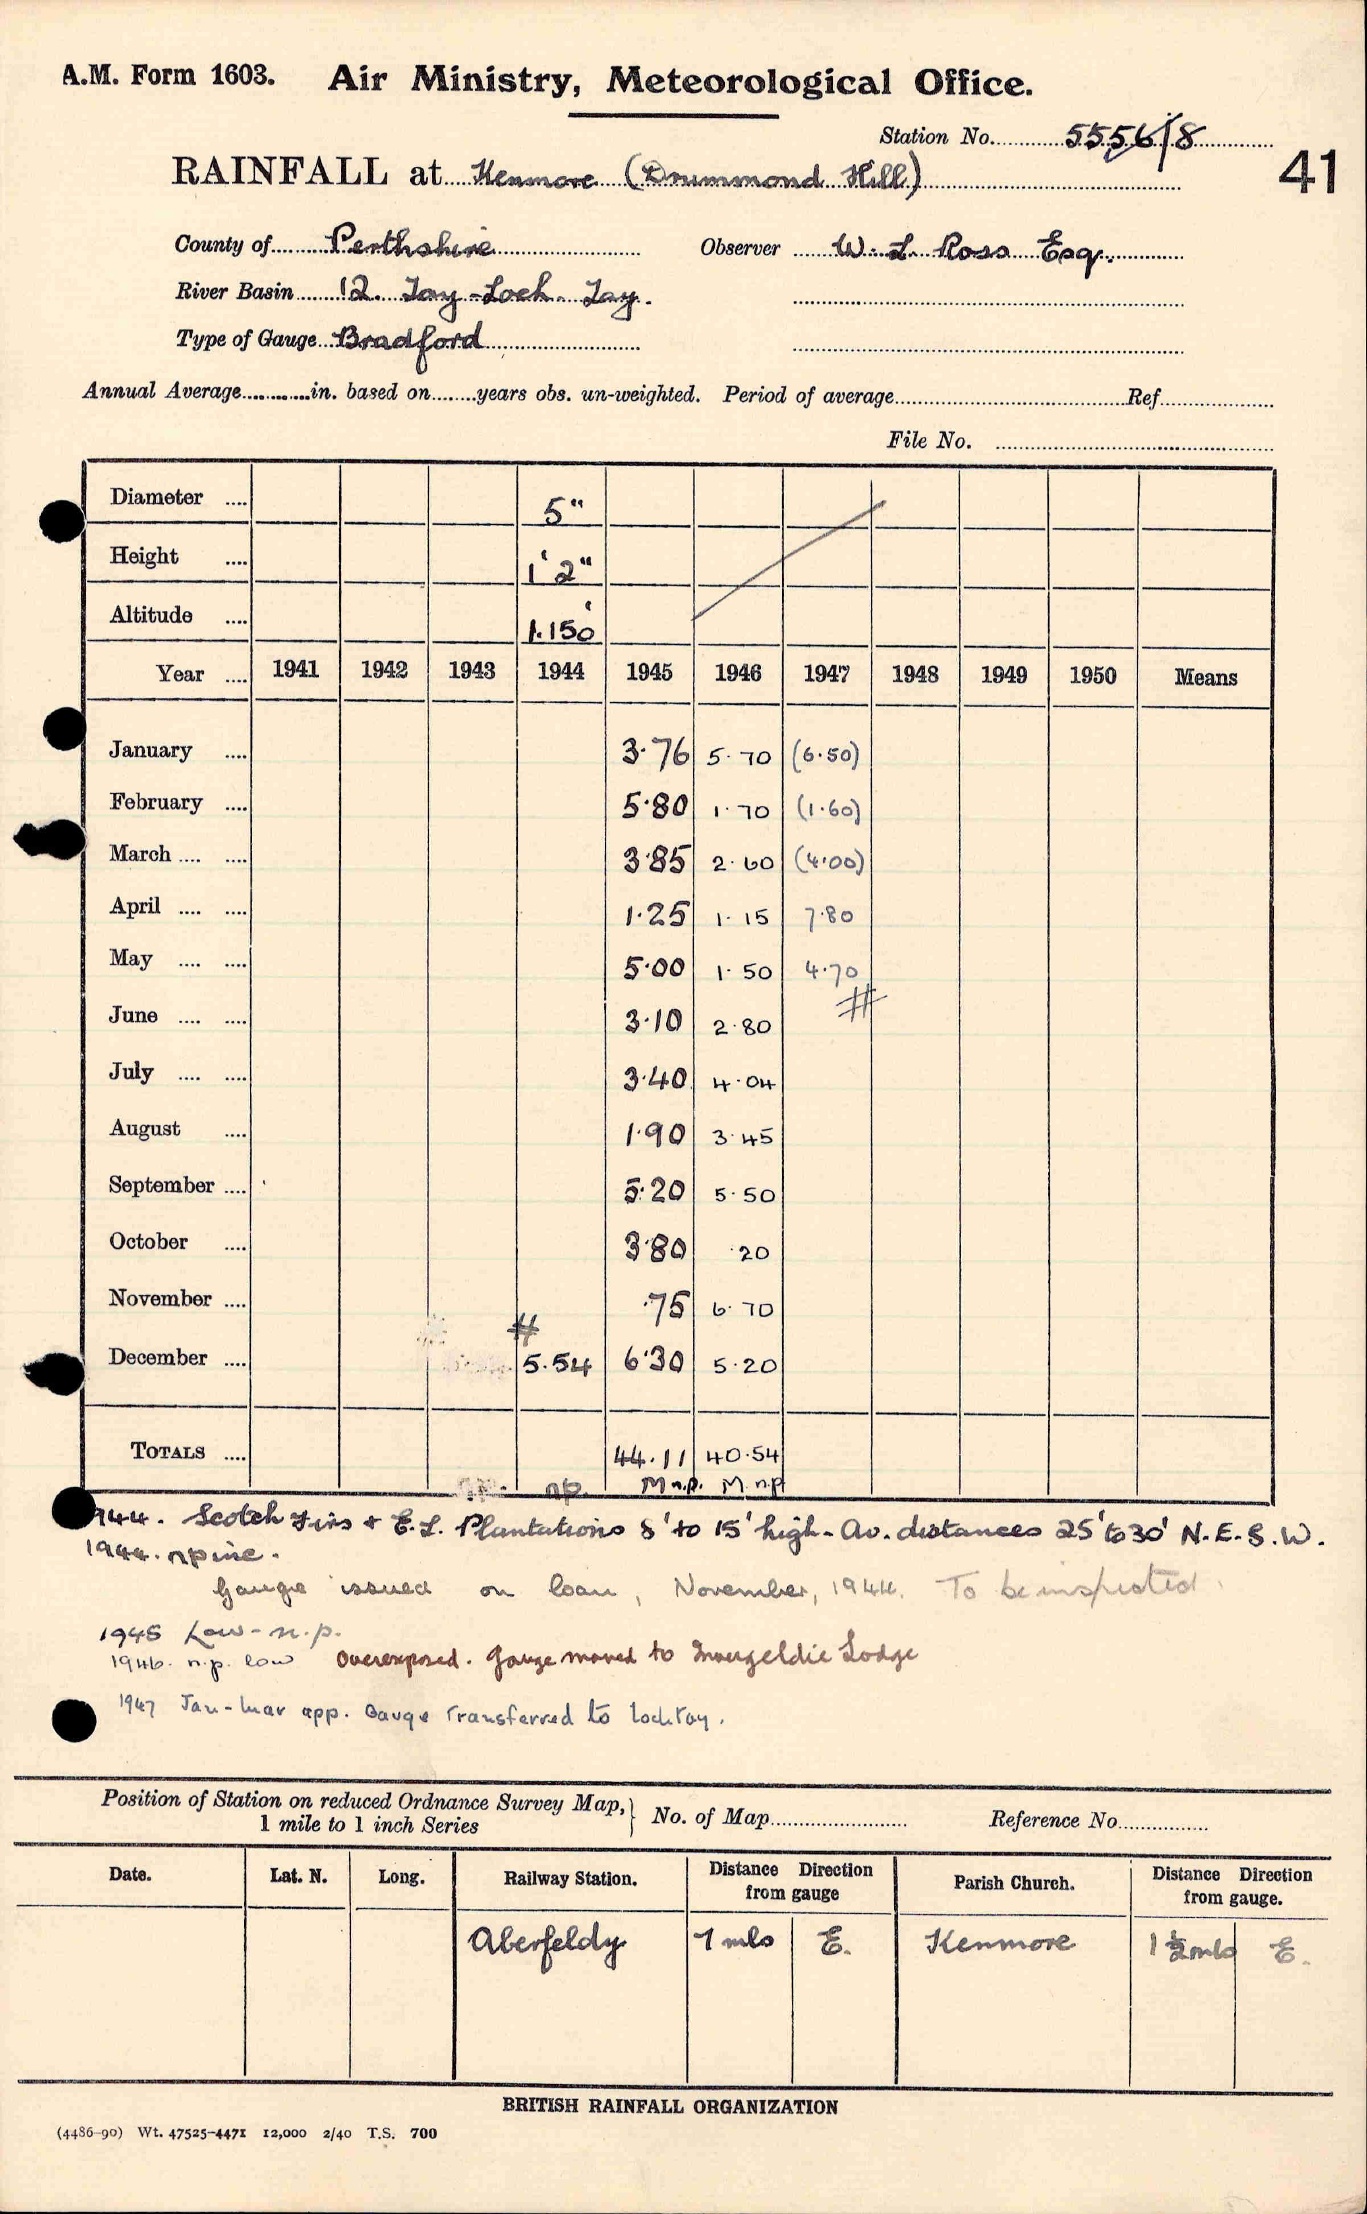 A.M. Form 1603. Air Ministry, Meteorological Office.
Station No. 5556/8
41
RAINFALL at Kenmore (Drummond Hill)
County of Perthshire Observer W. L. Ross Esq.
River Basin 12. Tay-Loch Tay.
Type of Gauge Bradford
Annual Average in. based on years obs. un-weighted. Period of average Ref
File No.
Diameter .... 5"
Height .... 1' 2"
Altitude .... 1.150'
Year .... 1941 1942 1943 1944 1945 1946 1947 1948 1949 1950 Means
January .... 3.76 5.70 (6.50)
February .... 5.80 1.70 (1.60)
March .... .... 3.85 2.60 (4.00)
April .... .... 1.25 1.15 7.80
May .... .... 5.00 1.50 4.70
June .... .... 3.10 2.80 #
July .... .... 3.40 4.04
August .... 1.90 3.45
September .... 5.20 5.50
October .... 3.80 .20
November .... .75 6.70
# December .... 5.54 6.30 5.20
TOTALS .... 44.11 40.54
n.p. M n.p. M n.p
1944. Scotch Firs + E.L. Plantations 8' to 15' high - Av. distances 25' to 30' N.E.S.W.
1944. np
Gauge issued on loan, November, 1944. To be inspected.
1945 Low - n.p.
1946. n.p. low Overexposed. Gauge moved to Invergeldie Lodge
1947 Jan-Mar app. Gauge transferred to Lochtay.
Position of Station on reduced Ordnance Survey Map, } No. of Map Reference No
1 mile to 1 inch Series
Date. Lat. N. Long. Railway Station. Distance Direction from gauge Parish Church. Distance Direction from gauge.
Aberfeldy 7 mls E. Kenmore 1½ mls E.
BRITISH RAINFALL ORGANIZATION
(4486-90) Wt. 47525-4471 12,000 2/40 T.S. 700